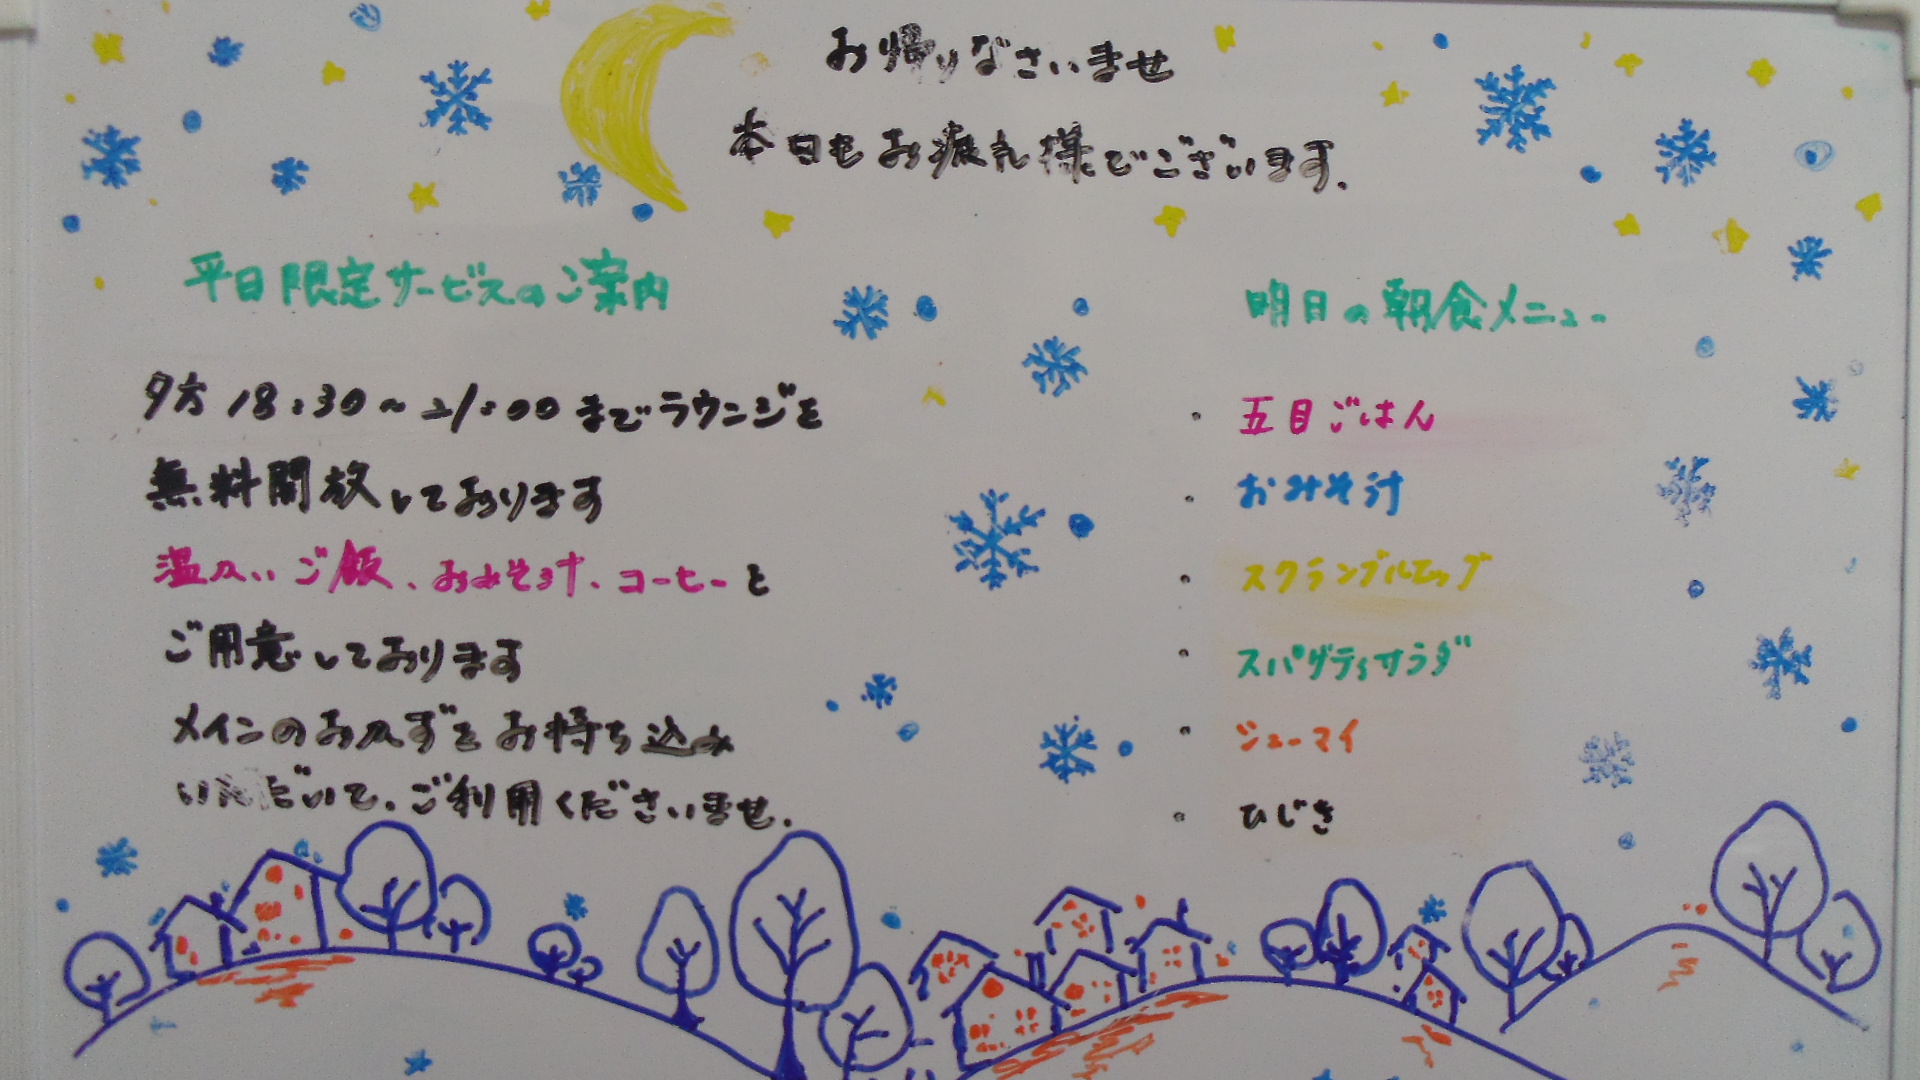 お帰りなさいませ
本日もお疲れ様でございます.
平日限定サービスのご案内
夕方 18:30~21:00 までラウンジを
無料開放しております
温かいご飯、おみそ汁、コーヒーと
ご用意しております
メインのおかずをお持ち込み
いただいて、ご利用くださいませ.
明日の朝食メニュー
・五目ごはん
・おみそ汁
・スクランブルエッグ
・スパゲティサラダ
・シューマイ
・ひじき